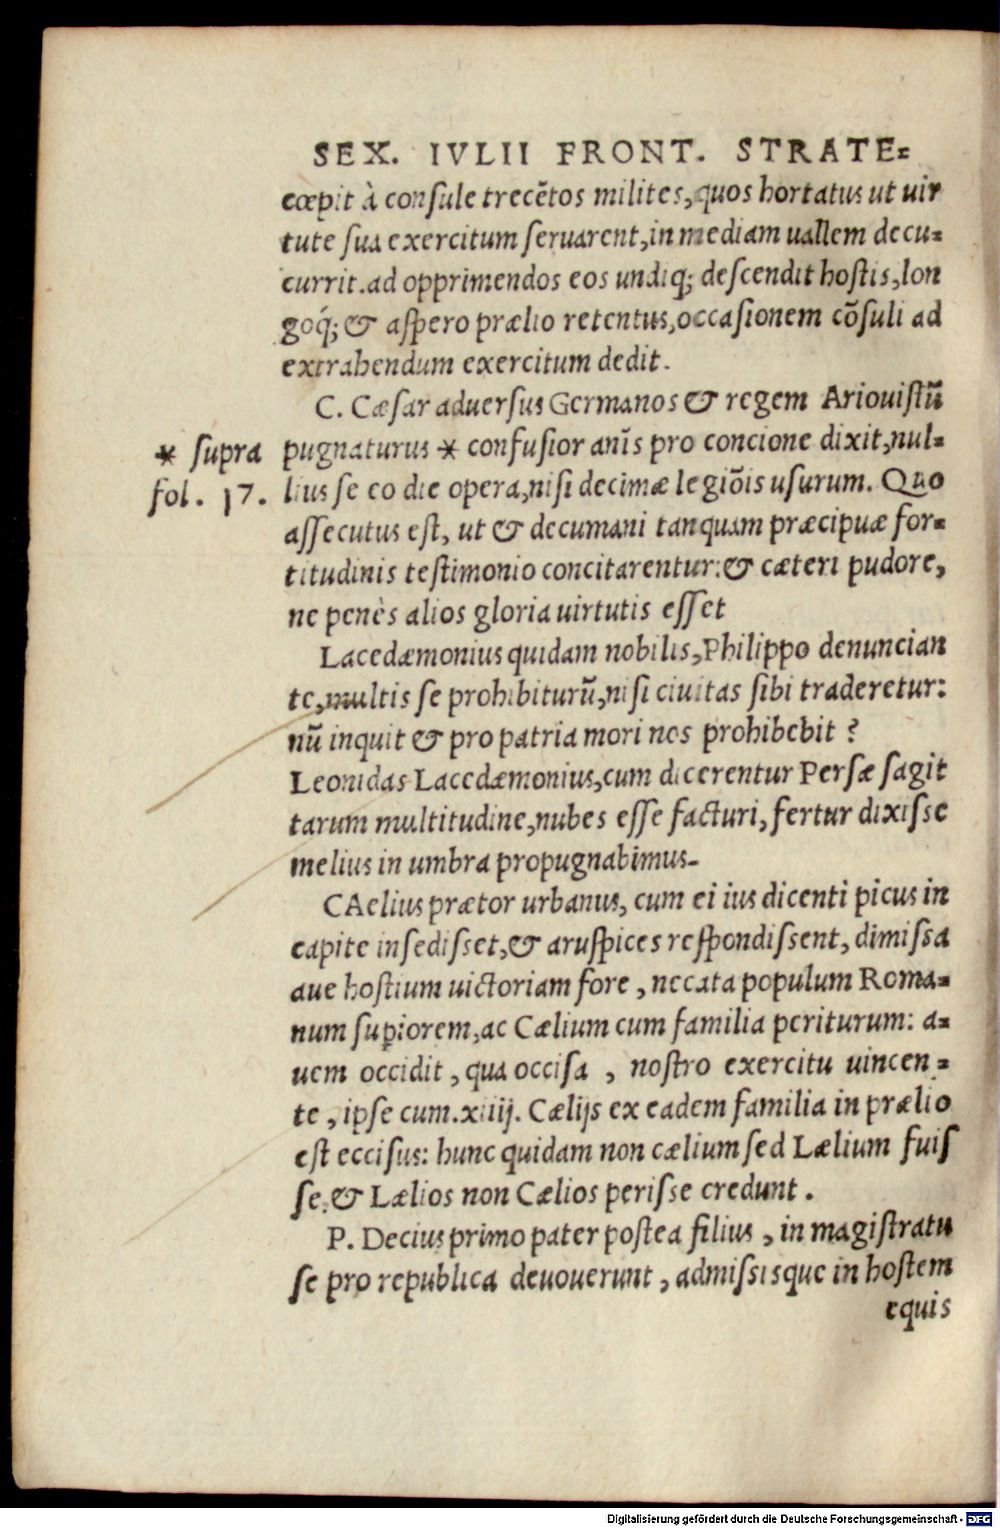 SEX. IVLII FRONT. STRATE=
cœpit à consule trecētos milites, quos hortatus ut uir
tute sua exercitum seruarent, in mediam uallem decu=
currit. ad opprimendos eos undiq; descendit hostis, lon
goq́; & aspero prælio retentus, occasionem cōsuli ad
extrahendum exercitum dedit.
C. Cæsar aduersus Germanos & regem Ariouistū
* supra
fol. 17.
pugnaturus * confusior anīs pro concione dixit, nul=
lius se eo die opera, nisi decimæ legiōis usurum. Quo
assecutus est, ut & decumani tanquam præcipuæ for=
titudinis testimonio concitarentur: & cæteri pudore,
ne penès alios gloria uirtutis esset
Lacedæmonius quidam nobilis, Philippo denuncian
te, multis se prohibiturū, nisi ciuitas sibi traderetur:
nū inquit & pro patria mori nos prohibebit ?
Leonidas Lacedæmonius, cum dicerentur Persæ sagit
tarum multitudine, nubes esse facturi, fertur dixisse
melius in umbra propugnabimus.
CAelius prætor urbanus, cum ei ius dicenti picus in
capite insedisset, & aruspices respondissent, dimissa
aue hostium uictoriam fore, necata populum Roma=
num supiorem, ac Cælium cum familia periturum: a=
uem occidit, qua occisa , nostro exercitu uincen=
te , ipse cum .xiiij. Cælijs ex eadem familia in prælio
est eccisus: hunc quidam non cælium sed Lælium fuis
se, & Lælios non Cælios perisse credunt.
P. Decius primo pater postea filius, in magistratu
se pro republica deuouerunt, admissisque in hostem
equis
Digitalisierung gefördert durch die Deutsche Forschungsgemeinschaft - DFG